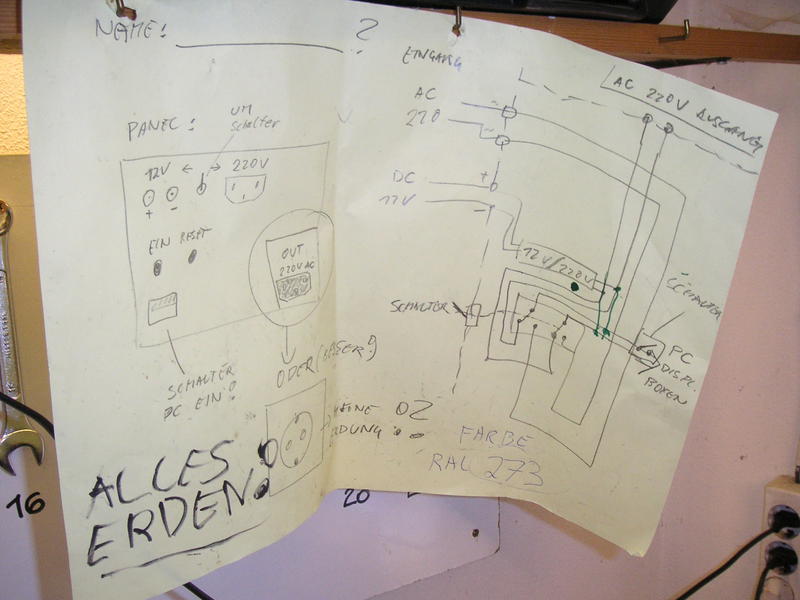 NAME:
?
PANEL:
UM
schalter
12V ← → 220V
+ -
EIN RESET
OUT
220V AC
SCHALTER
PC EIN
ODER (BESSER!)
ALLES
ERDEN!
EINGANG
AC
220
~
~
DC
12V
+
-
AC 220V AUSGANG
12V/220V
SCHALTER
SCHALTER
PC
DISPL.
BOXEN
FARBE
RAL 273
16
20